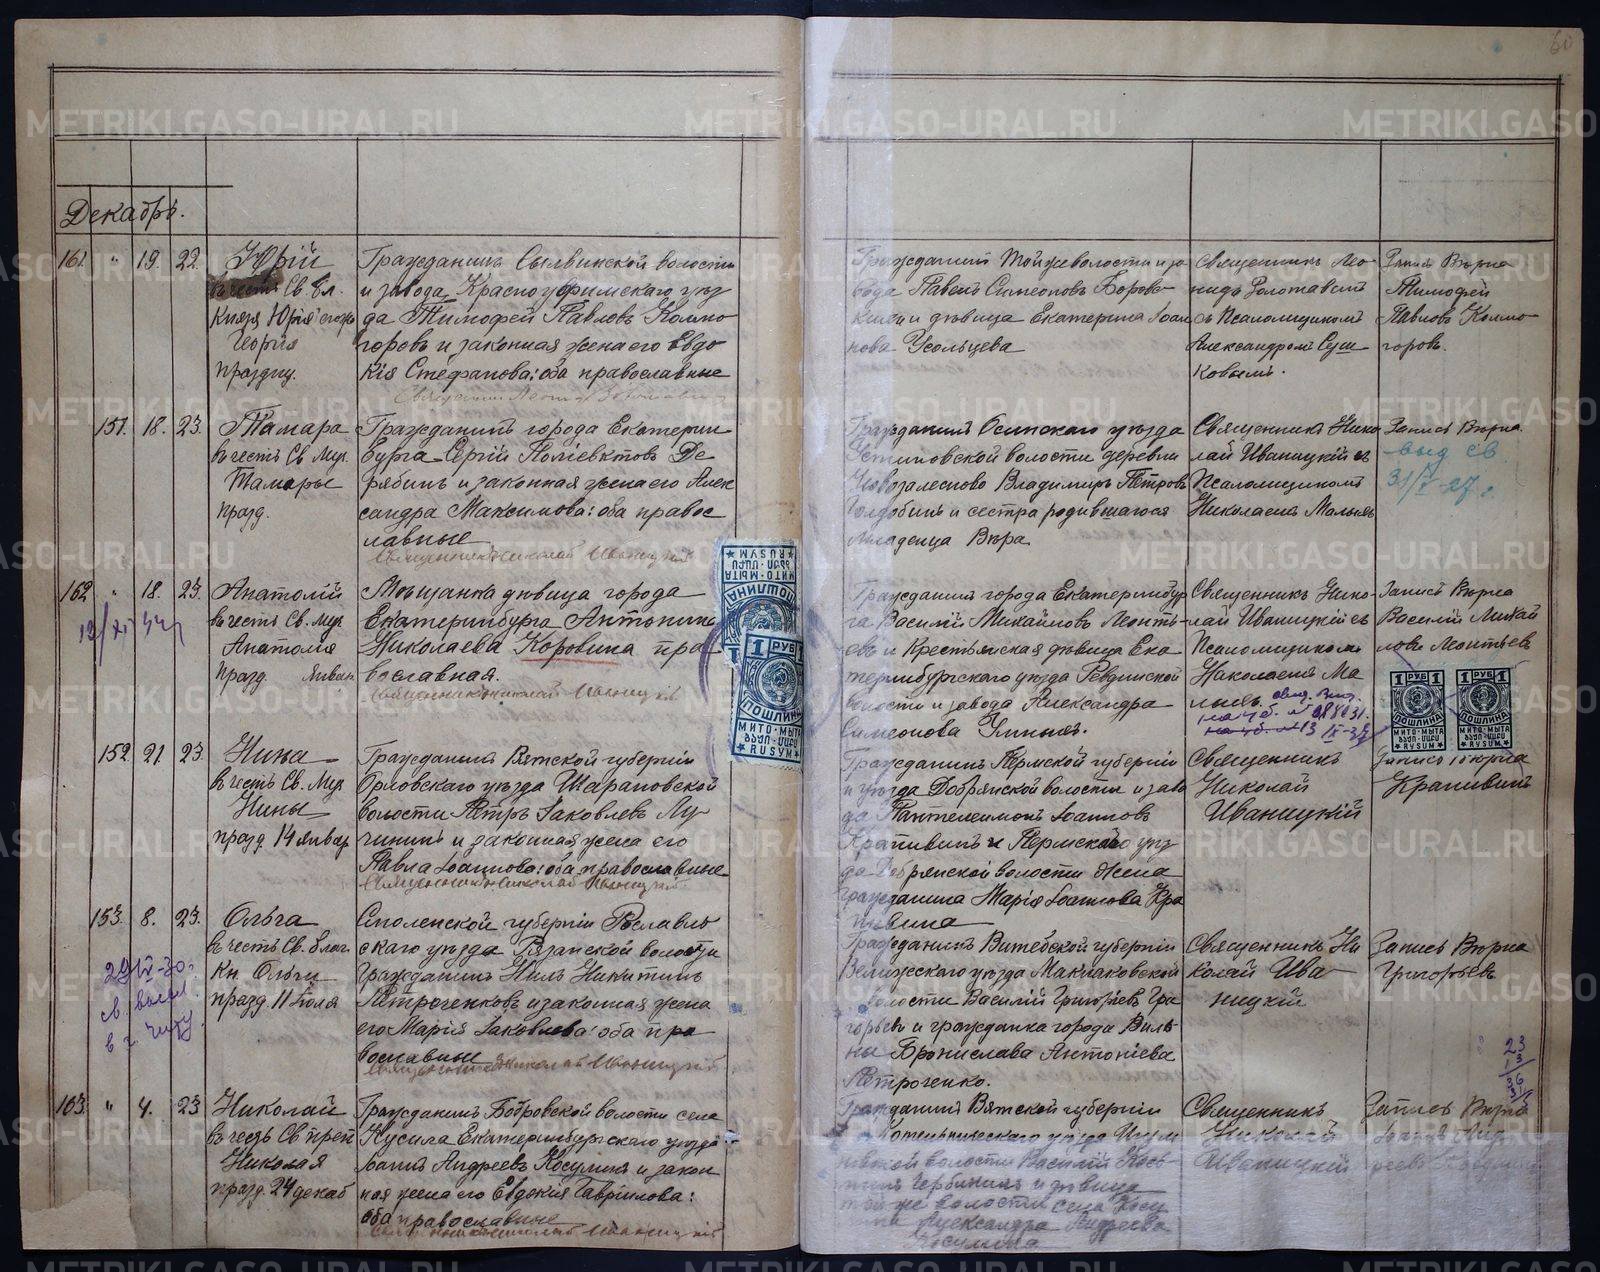 60
Декабрь.
161. " 19. 22.
Юрій
въ честь Св. бл.
Князя Юрія
Георгія
празднц.
Гражданинъ Сылвинской волости
и завода, Красноуфимскаго уѣз
да Тимофей Павловъ Колмо
горовъ и законная жена его Евдо
кія Стефанова: оба православные
Гражданинъ той же волости и за
вода Павелъ Симеоновъ Борово
и дѣвица Екатерина Іоан
нова Усольцева
Священникъ Лео
нидъ Золотавинъ
съ Псаломщикомъ
Александромъ Суш
ковымъ.
Запись Вѣрна
Тимофей
Павловъ Колмо
горовъ.
151. 18. 23.
Тамара
въ честь Св. Муч.
Тамары
празд.
Гражданинъ города Екатерин
бурга Сергій Поліевктовъ Де
рябинъ и законная жена его Алек
сандра Максимова: оба правос
лавные
Священникъ Николай Иваницкій
Гражданинъ Осинскаго уѣзда
Устиновской волости деревни
Новозалесново Владиміръ Петровъ
Голдобинъ и сестра родившагося
младенца Вѣра
Священникъ Нико
лай Иваницкій съ
Псаломщикомъ
Николаемъ
Запись Вѣрна.
выд св
31/V-27 г.
162 " 18. 23.
Анатолій
въ честь Св. Муч.
Анатолія
празд.
Мѣщанка дѣвица города
Екатеринбурга Антонина
Николаева Коровина пра
вославная.
Священникъ Николай Иваницкій
Гражданинъ города Екатеринбур
га Василій Михайловъ Леонть-
евъ и Крестьянская дѣвица Ека
теринбургскаго уѣзда Ревдинской
волости и завода Александра
Симеонова
Священникъ Нико-
лай Иваницкій съ
Псаломщикомъ
Николаемъ
Запись Вѣрна
Василій Михай
ловъ Леонтьевъ
1 РУБ
ПОШЛИНА
МИТО·МЫТА
RUSUM
1 РУБ 1
ПОШЛИНА
МИТО·МЫТА
★ RUSUM ★
1 РУБ 1
ПОШЛИНА
МИТО·МЫТА
★ RUSUM ★
152. 21. 23.
Нина
въ честь Св. Муч.
Нины
празд. 14 январ
Гражданинъ Вятской губерніи
Орловскаго уѣзда Шарановской
волости Петръ Іаковлевъ Му
чининъ и законная жена его
Павла Іоаннова: оба православные
Священникъ Николай Иваницкій
Гражданинъ Пермской губерніи
и уѣзда Добрянской волости и заво
да Пантелеимонъ Іоанновъ
Крапивинъ и Пермскаго уѣз
да Добрянской волости жена
гражданина Марія Іоаннова Кра
пивина
Священникъ
Николай
Иваницкій
Запись вѣрна
Крапивинъ
153. 8. 23.
Ольга
въ честь Св. благ.
Кн. Ольги
празд. 11 Іюля
в г. Читу.
Смоленской губерніи Рославль
скаго уѣзда Рязанской волости
гражданинъ Нилъ Никитинъ
Петроченковъ и законная жена
его Марія Іаковлева: оба пра
вославные
Священникъ Николай Иваницкій
Гражданинъ Витебской губерніи
Велижскаго уѣзда Маклаковской
волости Василій Григоріевъ Гри
горьевъ и гражданка города Виль
ны Брониславa Антоніева
Петроченко.
Священникъ Ни
колай Ива
ницкій
Запись Вѣрна
Григорьевъ
23
13
36
163 " 4. 23
Николай
въ честь Св. преп
Николая
празд. 24 декаб
Гражданинъ Бобровской волости села
Косулина Екатеринбургскаго уѣзда
Іоаннъ Андреевъ Косулинъ и закон
ная жена его Евдокія Гавріилова:
оба православные
Священникъ Николай Иваницкій
Гражданинъ Вятской губерніи
Котельническаго уѣзда
волости Василій
и дѣвица
той же волости села Косу
Александра Андреева
Косулина
Священникъ
Николай
Иваницкій
Запись Вѣрна